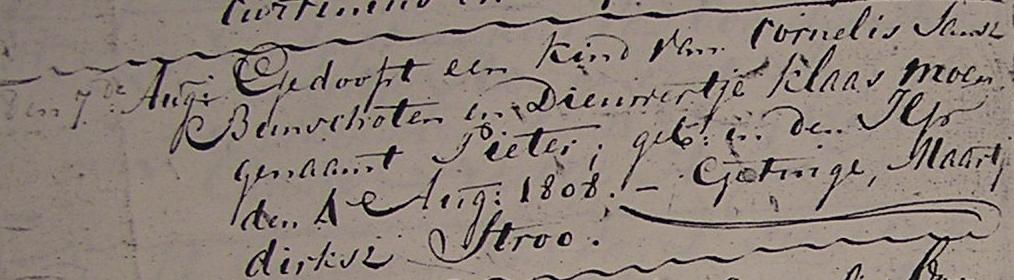 den 7de Aug: Gedoopt een kind van Cornelis Jansz
Bunschoten en Dieuwertje Klaas Moen
genaamt Pieter; geb: in den Ilp
den 1e Aug: 1808. – Getuige, Maartj
dirksz Stroo.